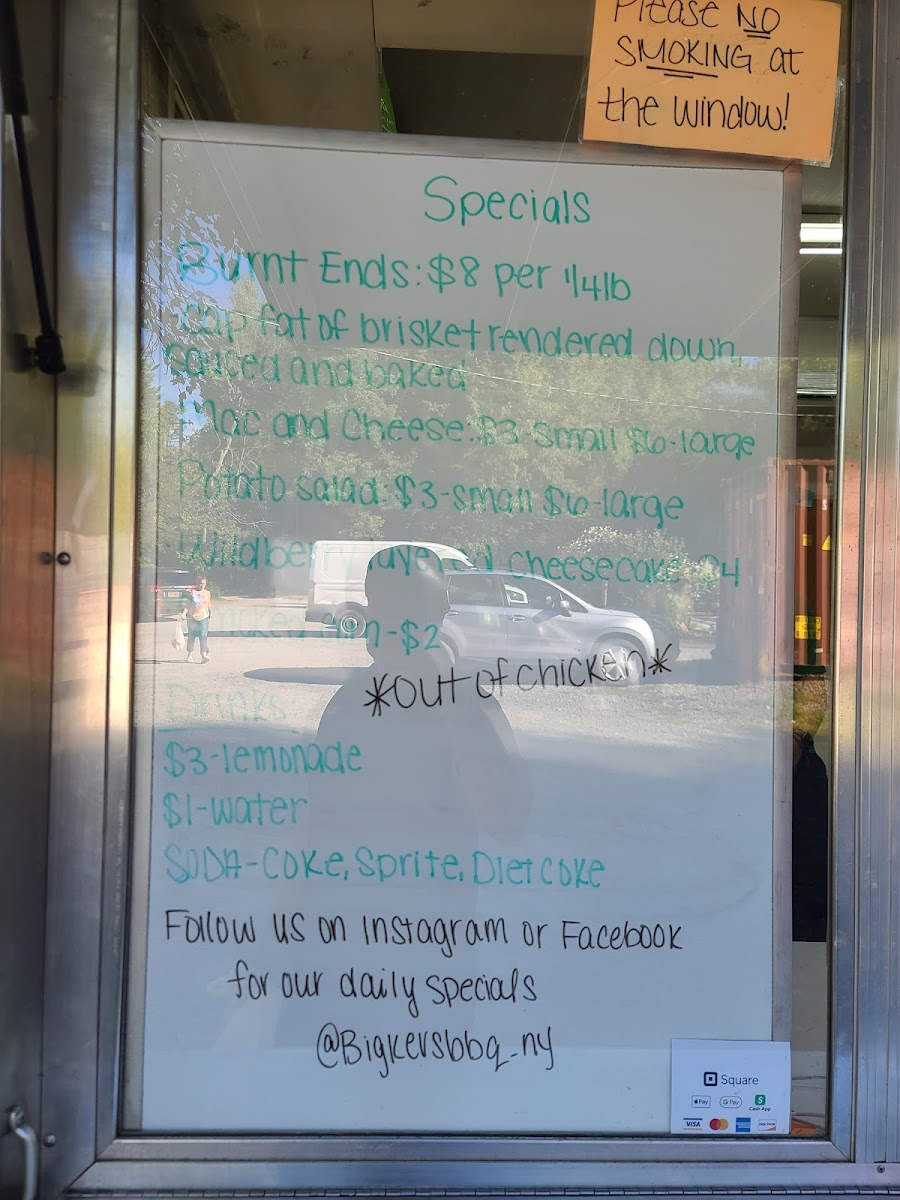 Please NO
SMOKING at
the window!
Specials
Burnt Ends: $8 per 1/4lb
-cap fat of brisket rendered down,
sauced and baked
Mac and Cheese: $3-small $6-large
Potato salad: $3-small $6-large
Wildberry layered cheesecake $4
-$2
*out of chicken*
Drinks
$3-lemonade
$1-water
SODA-COKE, Sprite, Diet coke
Follow us on Instagram or Facebook
for our daily specials
@Bigkersbbq_ny
Square
Pay
G Pay
Cash App
VISA
DISCOVER